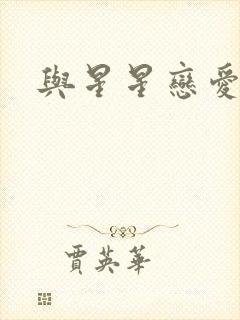 與星星戀愛
賈英華